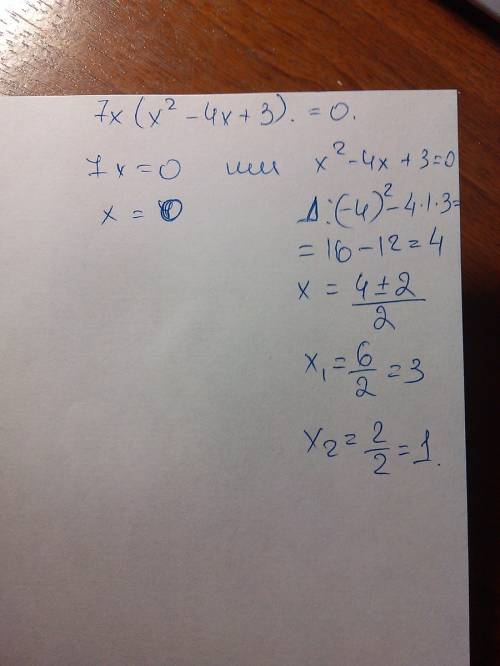 7x (x² - 4x + 3). = 0.
7x = 0 или x² - 4x + 3 = 0
x = 0 Δ: (-4)² - 4·1·3 =
= 16 - 12 = 4
x = (4 ± 2)/2
x₁ = 6/2 = 3
x₂ = 2/2 = 1.